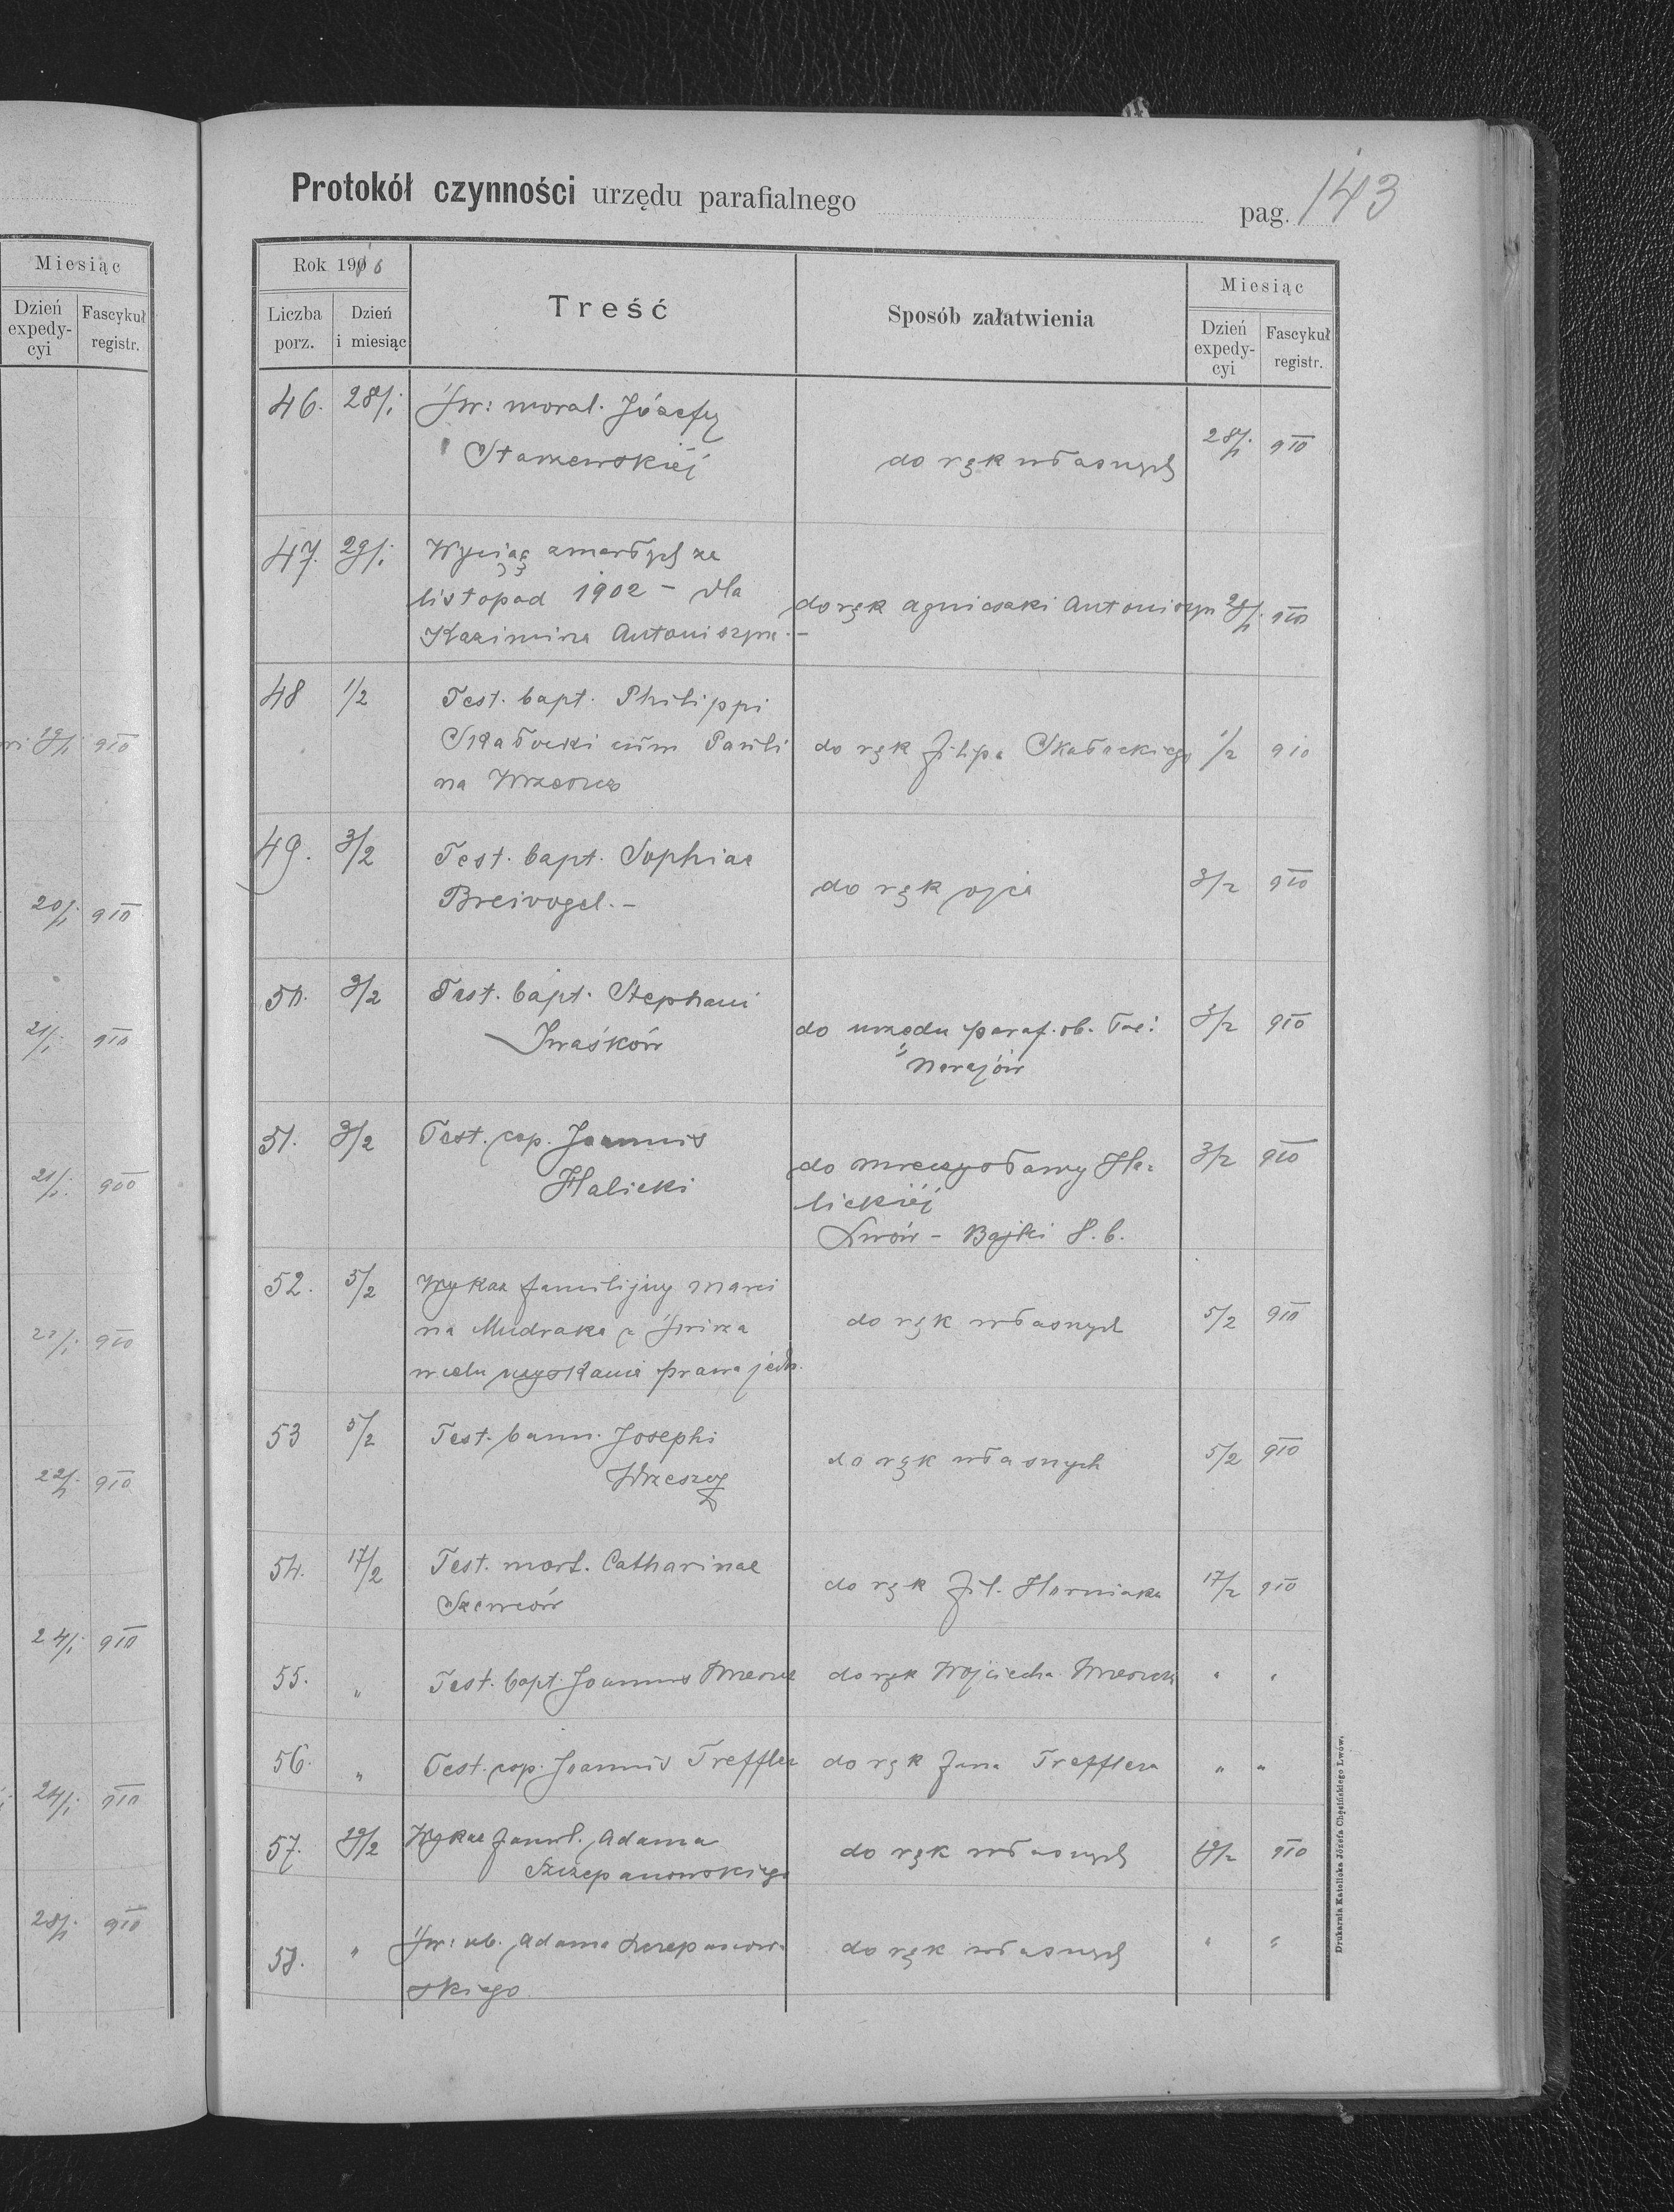 Miesiąc
Dzień expedy-cyi
Fascykuł registr.
19/1 910
20/1 910
21/1 910
21/1 910
910
22/1 910
24/1 910
24/1 910
28/1 910
Protokół czynności urzędu parafialnego
pag. 143
Rok 1906
Liczba porz.
Dzień i miesiąc
Treść
Sposób załatwienia
Miesiąc
Dzień expedy-cyi
Fascykuł registr.
46. 28/1 Św: moral. Józefy
Starzewskiéj
do rąk własnych 28/1 910
47. 29/1 Wyciąg zmarłych za
listopad 1902 - dla
Kazimirza Antoniszyna -
do rąk Agnieszki Antoniszyn 910
48 1/2 Test. bapt. Philippi
Skałocki cum Pauli
na Wrzeszcz
do rąk Filipa Skałackiego 1/2 910
49. 3/2 Test. bapt. Sophiae
Breivogel. -
do rąk ojca 3/2 910
50. 3/2 Test. bapt. Stephani
Iwaśków
do urzędu paraf. ob. łac:
w Narajów
3/2 910
51. 3/2 Test. cop. Joannis
Halicki
do Mieczysławy Ha=
lickiéj
Lwów - Bajki 8. b.
3/2 910
52. 5/2 Wykaz familijny Marci
na Mudraka z Świrza
w celu uzyskania prawa jedn.
do rąk własnych 5/2 910
53 5/2 Test. bann. Josephi
Wrzeszcz
do rąk własnych 5/2 910
54. 17/2 Test. mort. Catharinae
Szewców
do rąk Fil. Horniaka 17/2 910
55. " Test. bapt. Joannis Wrzeszcz do rąk Wojciecha Wrzeszcza " "
56. " Test. cop. Joannis Treffler do rąk Jana Trefflera " "
57. 19/2 Wykaz famil. Adama
Szczepanowskiego
do rąk własnych 19/2 910
58. " Św: ub. Adama Szczepanow=
skiego
do rąk własnych " "
Drukarnia Katolicka Józefa Chęcińskiego Lwów.